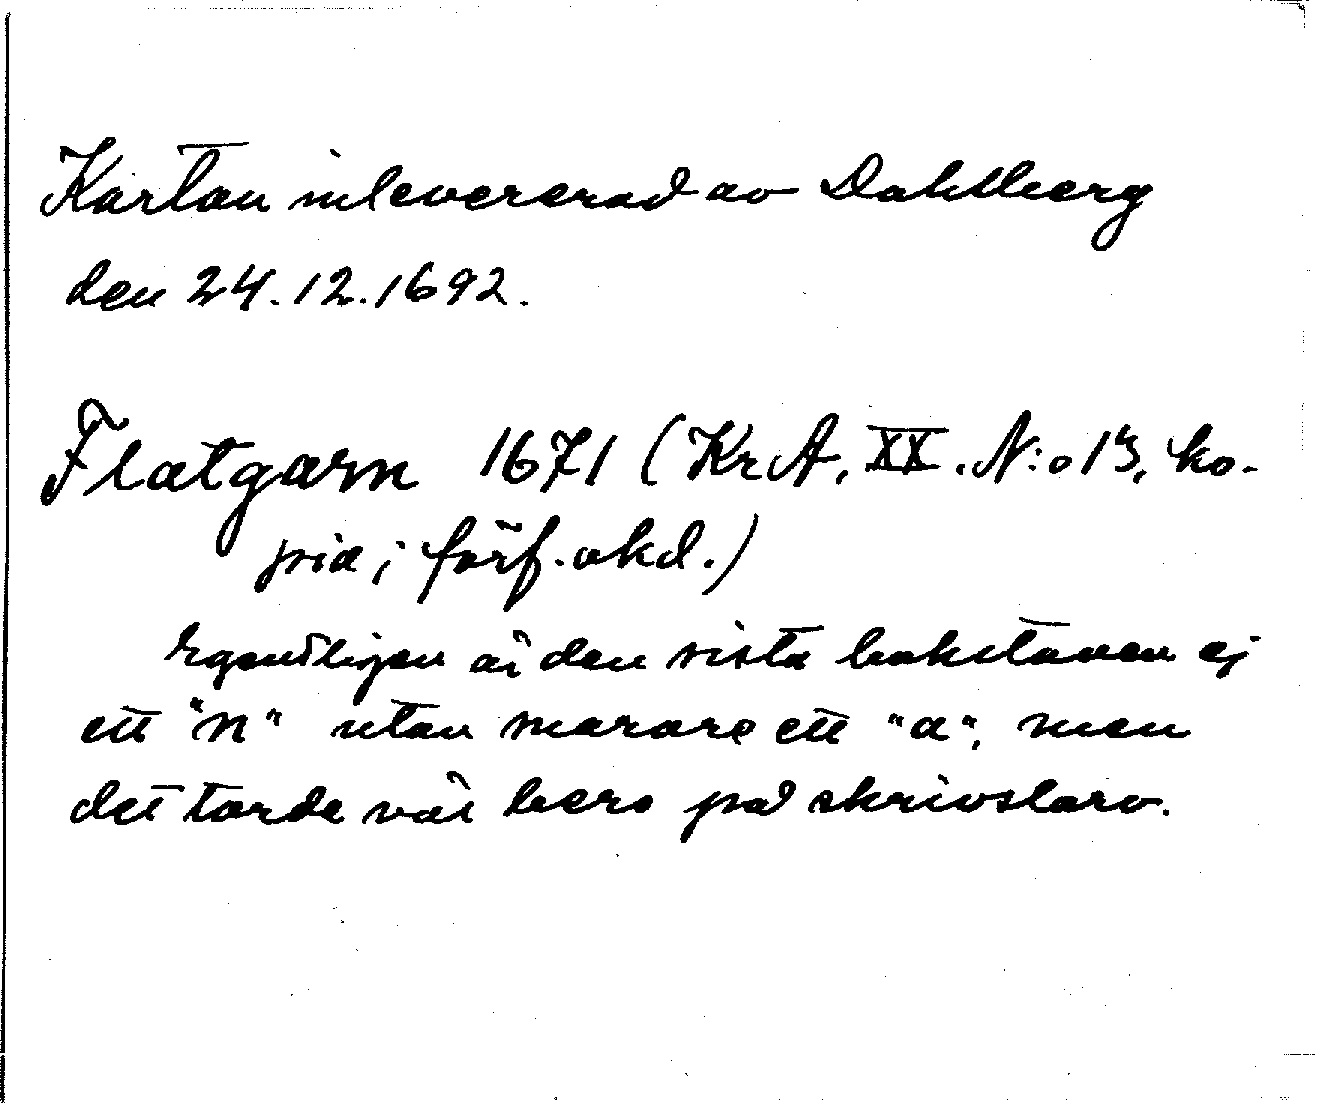 Kartan inlevererad av Dahlberg
den 24.12.1692.
Flatgarn 1671 (KrA, XX. N:o 13, ko-
pia i förf. akd.)
Egentligen är den sista bokstaven ej
ett "n" utan snarare ett "a", men
det torde väl bero på skrivslarv.